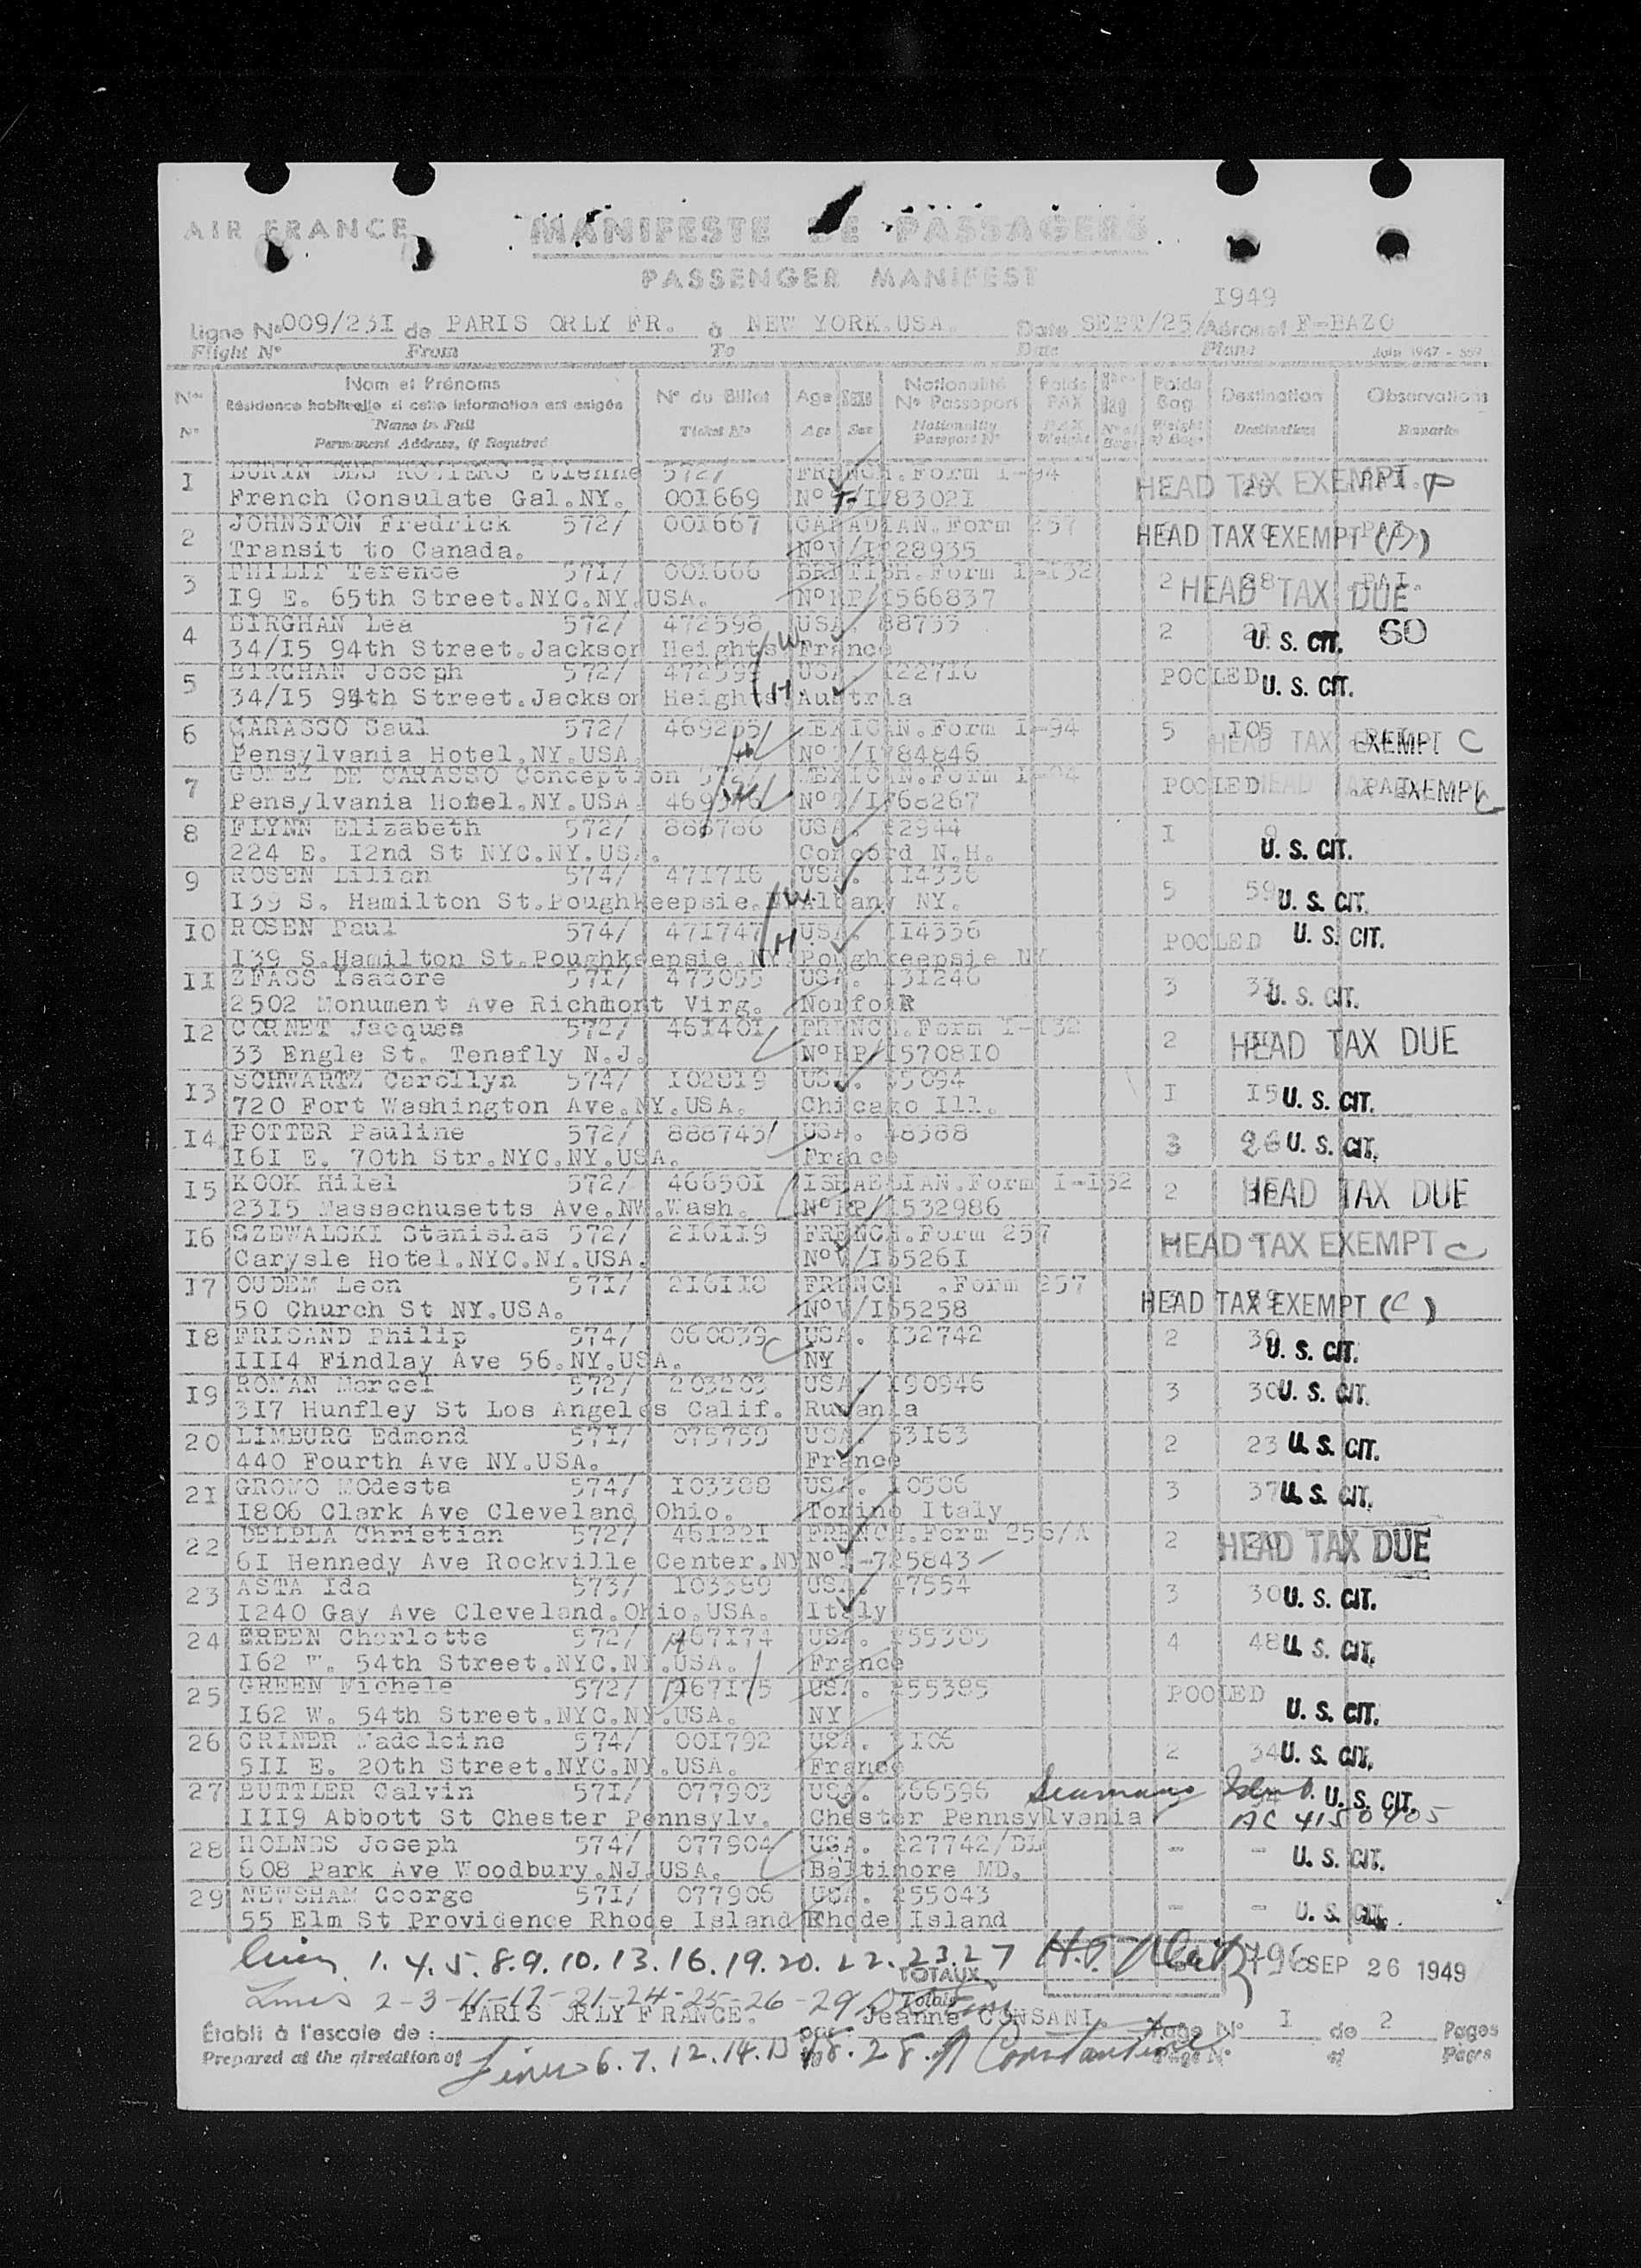 AIR FRANCE
MANIFESTE DE PASSAGERS
PASSENGER MANIFEST
1949
Ligne N° 009/231 de PARIS ORLY FR. à NEW YORK.USA. Date SEPT/25/ Aéronef F-BAZO
Flight N° From To Date Plane Juin 1947 -
N° Nom et Prénoms N° du Billet Age Sexe Nationalité Poids Poids Destination Observations
Résidence habituelle si cette information est exigée N° Passeport PAX Bag.
N° Name in Full Ticket N° Age Sex Nationality Destination Remarks
Permanent Address, if Required Passport N° Weight
I Etienne 572/ FRENCH.Form I-94
French Consulate Gal.NY. 001669 N° I783021 HEAD TAX EXEMPT P
2 JOHNSTON Fredrick 572/ 001667 CANADIAN.Form 257
Transit to Canada. N°V/I 28935 HEAD TAX EXEMPT (P)
3 PHILIP Terence 571/ 001666 BRITISH.Form I-132 2 HEAD TAX DUE
I9 E. 65th Street.NYC.NY.USA. N°RP/I566837
4 BIRGHAN Lea 572/ 472598 USA. 88733 2 U. S. CIT. 60
34/I5 94th Street.Jackson Heights W France
5 BIRGHAN Joseph 572/ USA 22716 POOLED U. S. CIT.
34/I5 94th Street.Jackson Heights H Austria
6 CARASSO Saul 572/ MEXICAN.Form I-94 5 I05
Pensylvania Hotel.NY.USA H N° I784846 HEAD TAX EXEMPT C
7 GOMEZ DE CARASSO Conception 572/ MEXICAN.Form I-94 POOLED HEAD TAX EXEMPT C
Pensylvania Hotel.NY.USA W N° I768267
8 FLYNN Elizabeth 572/ 888786 USA. 2944 I
224 E. I2nd St NYC.NY.USA. Concord N.H. U. S. CIT.
9 ROSEN Lilian 574/ 471716 USA. II4336 5 59 U. S. CIT.
I39 S. Hamilton St.Poughkeepsie. W Albany NY.
IO ROSEN Paul 574/ 471747 USA. II4336 POOLED U. S. CIT.
I39 S.Hamilton St.Poughkeepsie.NY H Poughkeepsie NY
II ZFASS Isadore 571/ 473055 USA. I31246 3 U. S. CIT.
2502 Monument Ave Richmont Virg. Norfolk
I2 CORNET Jacques 572/ 461401 FRENCH.Form I-I32 2 HEAD TAX DUE
33 Engle St. Tenafly N.J. N°RP/I5708IO
I3 SCHWARTZ Carollyn 574/ I028I9 USA. 5094 I I5 U. S. CIT.
720 Fort Washington Ave.NY.USA. Chicago Ill.
I4 POTTER Pauline 572/ 888743 USA. 48388 3 26 U. S. CIT.
I6I E. 70th Str.NYC.NY.USA. France
I5 KOOK Hilel 572/ 466501 ISRAELIAN.Form I-I32 2 HEAD TAX DUE
23I5 Massachusetts Ave.NW.Wash. N°RP/I532986
I6 SZEWALSKI Stanislas 572/ 2I6II9 FRENCH.Form 257
Carysle Hotel.NYC.NY.USA. N°V/I5526I HEAD TAX EXEMPT C
I7 OUDEM Leon 571/ 2I6II8 FRENCH .Form 257
50 Church St NY.USA. N°V/I55258 HEAD TAX EXEMPT (C)
I8 FRISAND Philip 574/ 060839 USA. I32742 2 U. S. CIT.
III4 Findlay Ave 56.NY.USA. NY
I9 ROMAN Marcel 572/ 203203 USA. I90946 3 30 U. S. CIT.
3I7 Hunfley St Los Angeles Calif. Rumania
20 LIMBURG Edmond 571/ 075759 USA. 53I63 2 23 U. S. CIT.
440 Fourth Ave NY.USA. France
2I GROMO Modesta 574/ I03388 USA. I0586 3 37 U. S. CIT.
I806 Clark Ave Cleveland Ohio. Torino Italy
22 DELPLA Christian 572/ 46I22I FRENCH.Form 256/A 2 HEAD TAX DUE
6I Hennedy Ave Rockville Center.NY N°I-725843
23 ASTA Ida 573/ I03389 USA. 47554 3 30 U. S. CIT.
I240 Gay Ave Cleveland.Ohio.USA. Italy
24 EREEN Charlotte 572/ 467I74 USA. 255385 4 48 U. S. CIT.
I62 W. 54th Street.NYC.NY.USA. France
25 GREEN Michele 572/ 467I75 USA. 255385 POOLED U. S. CIT.
I62 W. 54th Street.NYC.NY.USA. NY
26 CRINER Madeleine 574/ 00I792 USA. 2 34 U. S. CIT.
5II E. 20th Street.NYC.NY.USA. France
27 BUTTLER Calvin 571/ 077903 USA. 266596 Seamans Ident. U. S. CIT.
III9 Abbott St Chester Pennsylv. Chester Pennsylvania
28 HOLNES Joseph 574/ 077904 USA. 227742/BL - - U. S. CIT.
608 Park Ave Woodbury.NJ.USA. Baltimore MD.
29 NEWSHAM George 571/ 077906 USA. 255043 - - U. S. CIT.
55 Elm St Providence Rhode Island Rhode Island
Lines 1.4.5.8.9.10.13.16.19.20.22.23.27 SEP 26 1949
TOTAUX
Lines 2-3-11-17-21-24-25-26-29 Totals
Établi à l'escale de : PARIS ORLY FRANCE. par Jeanne CONSANI. Page N° I de 2 Pages
Prepared at the Page N° of Pages
Lines 6.7.12.14.15.18.28. Constantine